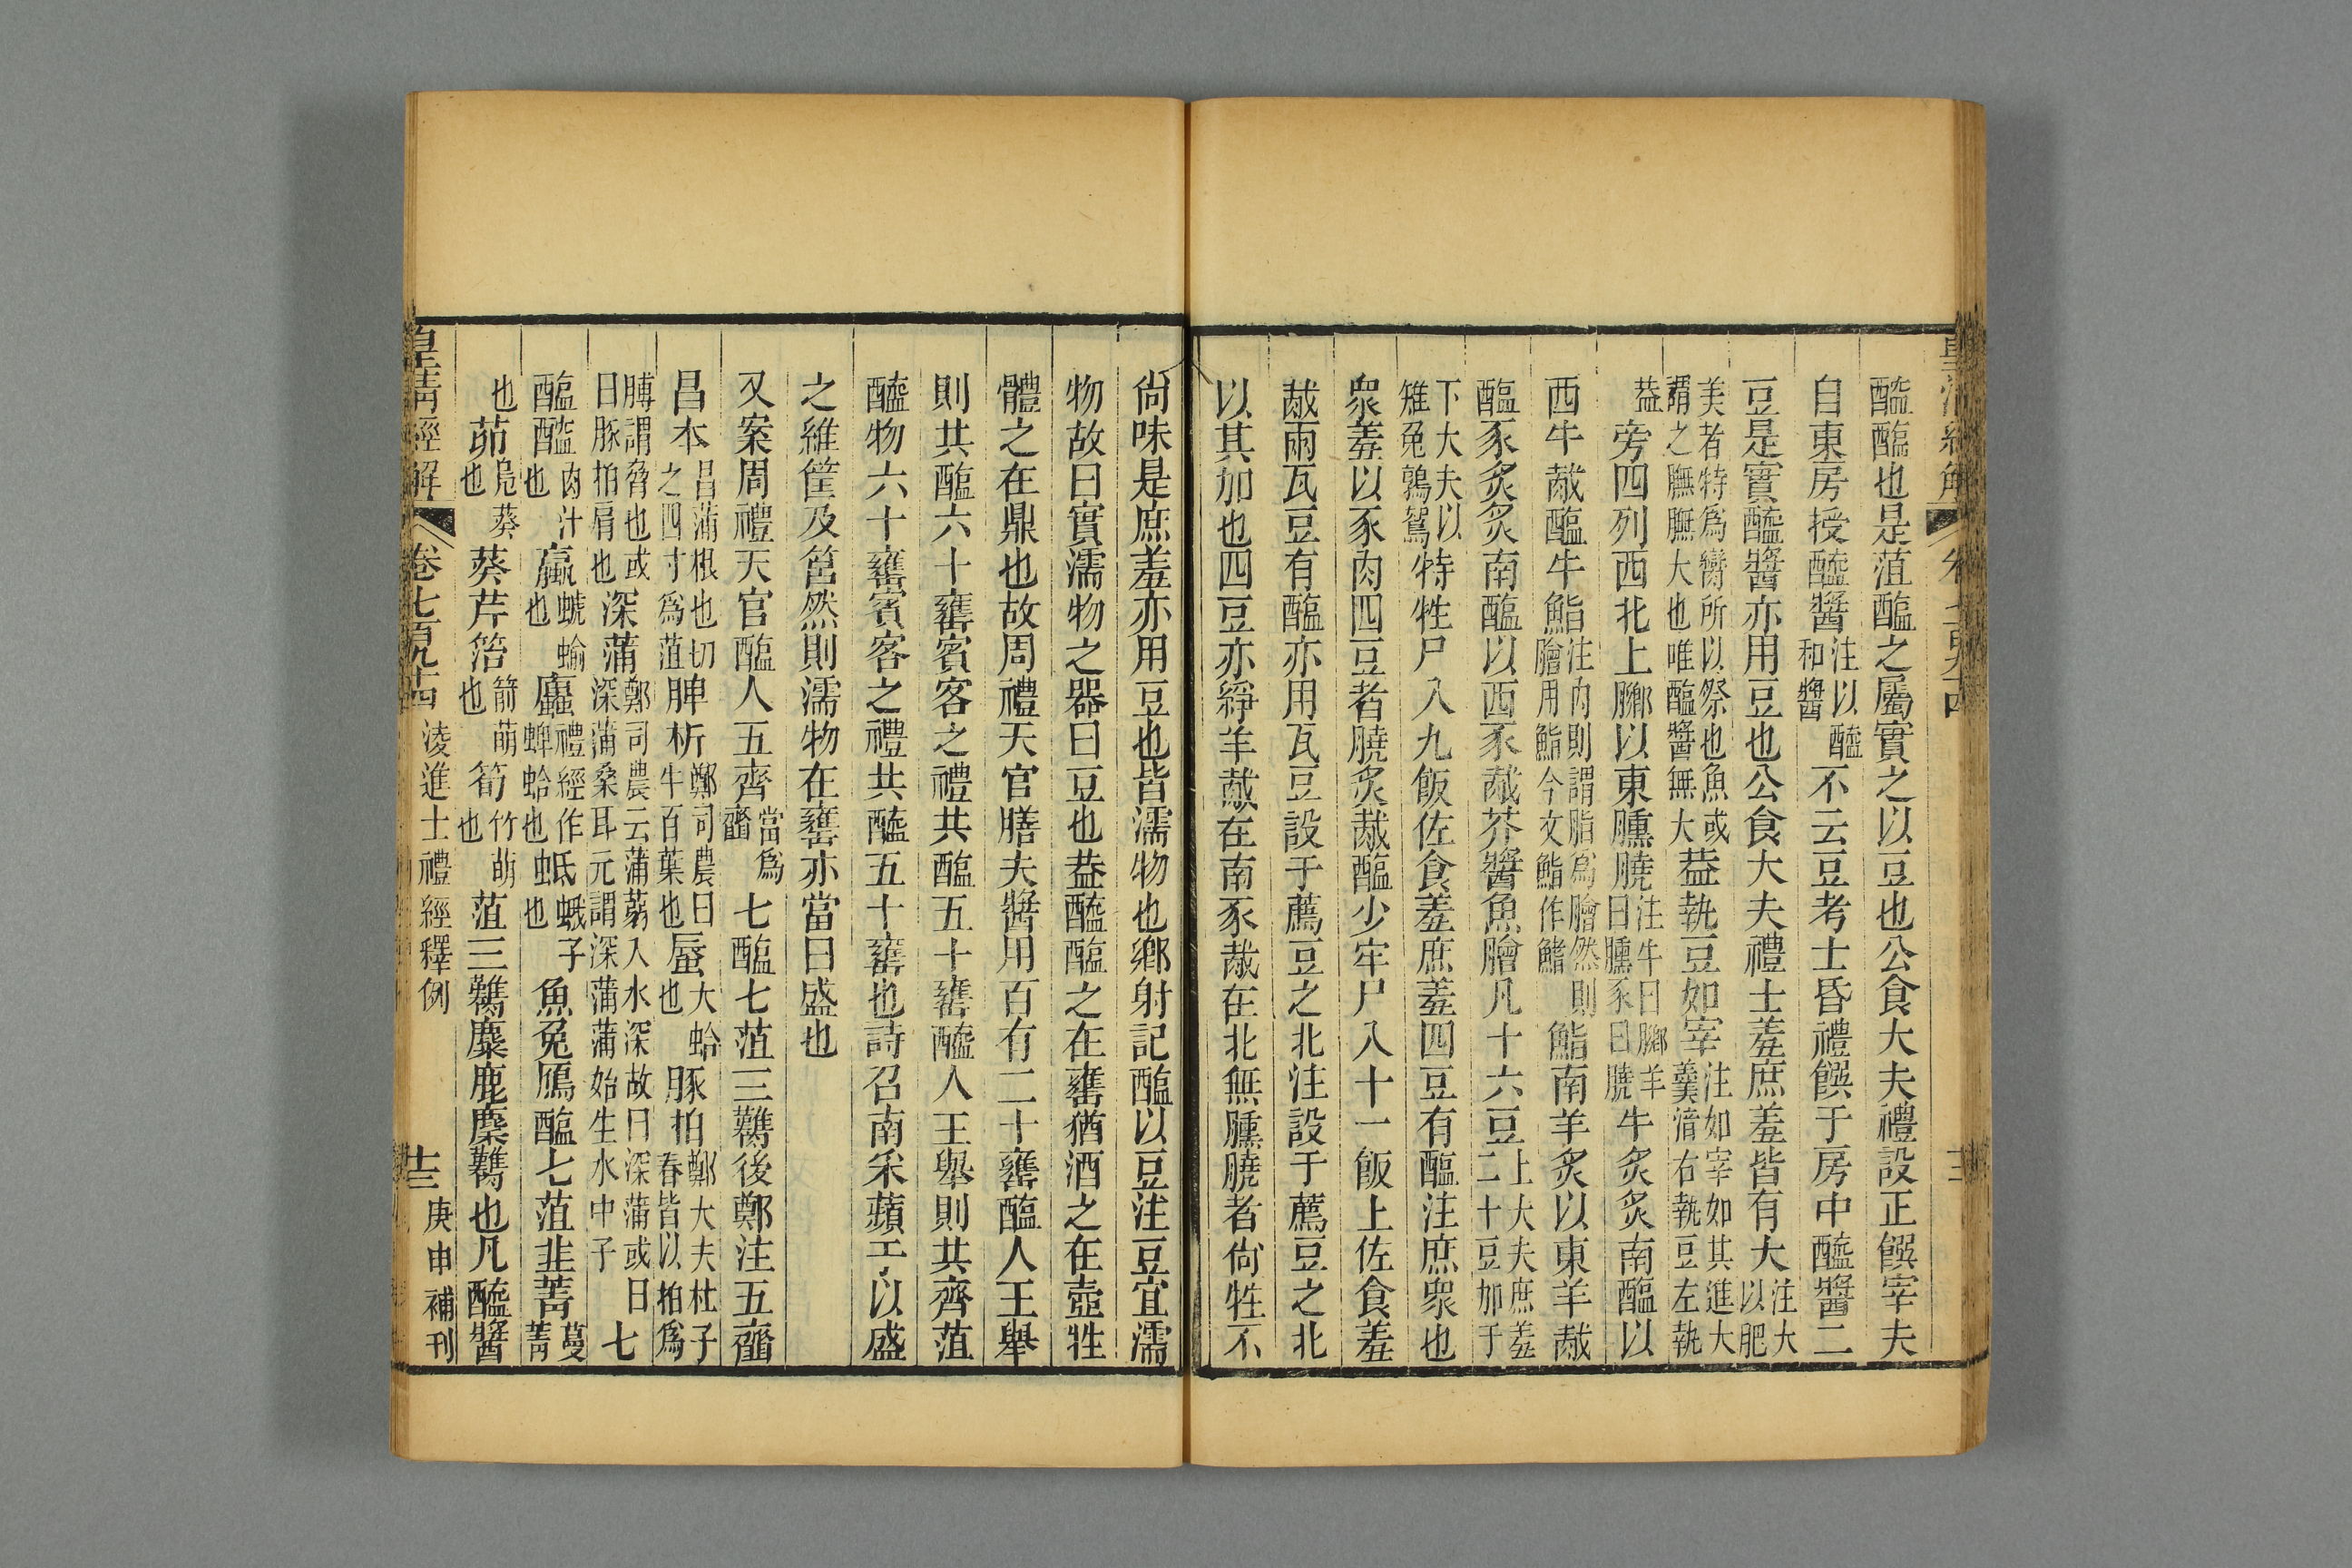 皇清經解 卷七百九十四 十三
醯醢也是菹醢之屬實之以豆也公食大夫禮設正饌宰夫
自東房授醯醬注以醯和醬不云豆考士昏禮饌于房中醯醬二
豆是實醯醬亦用豆也公食大夫禮士羞庶羞皆有大注大以肥
美者特爲臠所以祭也魚或謂之膴膴大也唯醢醬無大葢執豆如宰注如宰如其進大羹湆右執豆左執
葢旁四列西北上膷以東臐膮注牛曰膷羊曰臐豕曰膮牛炙炙南醢以
西牛胾醢牛鮨注內則謂鮨爲膾然則膾用鮨今文鮨作鰭鮨南羊炙以東羊胾
醢豕炙炙南醢以西豕胾芥醬魚膾凡十六豆上大夫庶羞二十豆加于
下大夫以雉兔鶉鴽特牲尸入九飯佐食羞庶羞四豆有醢注庶衆也
衆羞以豕肉四豆者膮炙胾醢少牢尸入十一飯上佐食羞
胾兩瓦豆有醢亦用瓦豆設于薦豆之北注設于薦豆之北
以其加也四豆亦綪羊胾在南豕胾在北無臐膮者尚牲不
尚味是庶羞亦用豆也皆濡物也鄉射記醢以豆注豆宜濡
物故曰實濡物之器曰豆也葢醯醢之在甕猶酒之在壺牲
體之在鼎也故周禮天官膳夫醬用百有二十甕醢人王舉
則共醢六十甕賓客之禮共醢五十甕醯人王舉則共齊菹
醯物六十甕賓客之禮共醯五十甕也詩召南采蘋于以盛
之維筐及筥然則濡物在甕亦當曰盛也
又案周禮天官醢人五齊當爲齏七醢七菹三臡後鄭注五齏
昌本昌蒲根也切之四寸爲菹脾析鄭司農曰牛百葉也蜃大蛤也豚拍鄭大夫杜子春皆以拍爲
膊謂脅也或曰豚拍肩也深蒲鄭司農云蒲蒻入水深故曰深蒲或曰深蒲桑耳元謂深蒲蒲始生水中子七
醢醓肉汁也蠃蠯蝓也蠯禮經作蜱蛤也蚳蛾子也魚兔鴈醢七菹韭菁蔓菁
也茆鳧葵也葵芹箈箭萌也筍竹萌也菹三臡麋鹿麇臡也凡醯醬
皇清經解 卷七百九十四 淩進士禮經釋例 十三 庚申補刊